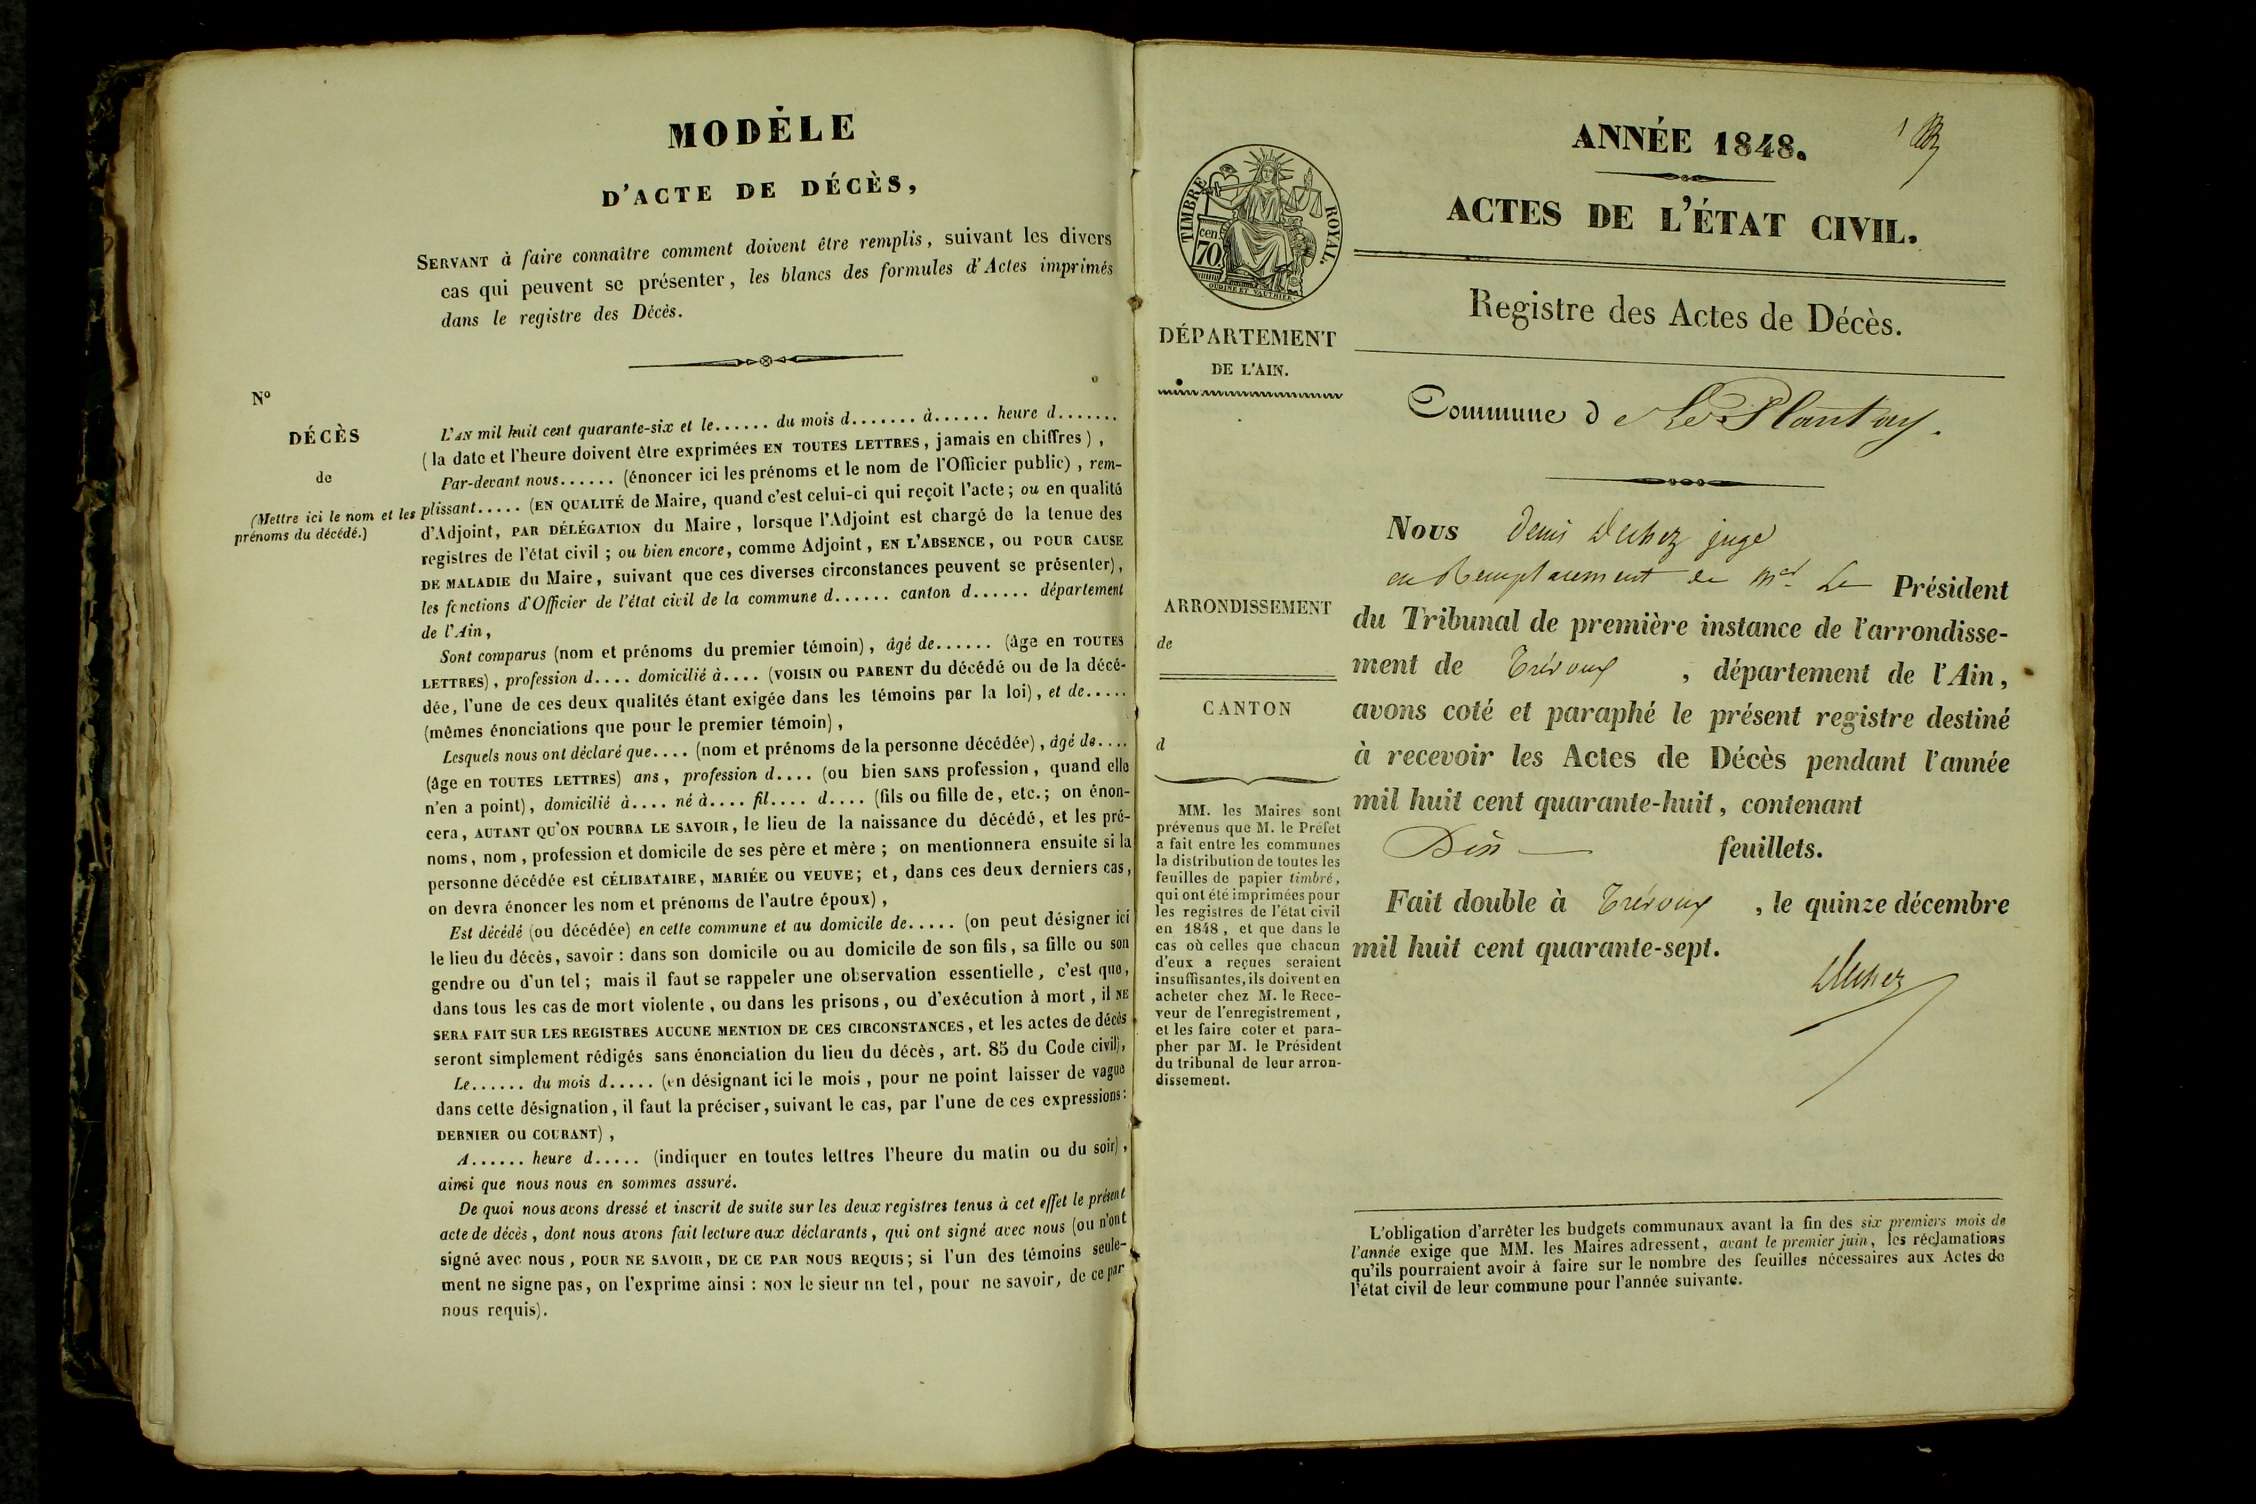 MODÈLE
D'ACTE DE DÉCÈS,
SERVANT à faire connaître comment doivent être remplis, suivant les divers
cas qui peuvent se présenter, les blancs des formules d'Actes imprimés
dans le registre des Décès.
N°
DÉCÈS
de
(Mettre ici le nom et les
prénoms du décédé.)
L'AN mil huit cent quarante-six et le...... du mois d....... à...... heure d.......
(la date et l'heure doivent être exprimées EN TOUTES LETTRES, jamais en chiffres),
Par-devant nous...... (énoncer ici les prénoms et le nom de l'Officier public), rem-
plissant..... (EN QUALITÉ de Maire, quand c'est celui-ci qui reçoit l'acte; ou en qualité
d'Adjoint, PAR DÉLÉGATION du Maire, lorsque l'Adjoint est chargé de la tenue des
registres de l'état civil; ou bien encore, comme Adjoint, EN L'ABSENCE, OU POUR CAUSE
DE MALADIE du Maire, suivant que ces diverses circonstances peuvent se présenter),
les fonctions d'Officier de l'état civil de la commune d...... canton d...... département
de l'Ain,
Sont comparus (nom et prénoms du premier témoin), âgé de...... (âge en TOUTES
LETTRES), profession d.... domicilié à.... (VOISIN OU PARENT du décédé ou de la décé-
dée, l'une de ces deux qualités étant exigée dans les témoins par la loi), et de.....
(mêmes énonciations que pour le premier témoin),
Lesquels nous ont déclaré que.... (nom et prénoms de la personne décédée), âgé de....
(âge en TOUTES LETTRES) ans, profession d.... (ou bien SANS profession, quand elle
n'en a point), domicilié à.... né à.... fil.... d.... (fils ou fille de, etc.; on énon-
cera, AUTANT QU'ON POURRA LE SAVOIR, le lieu de la naissance du décédé, et les pré-
noms, nom, profession et domicile de ses père et mère; on mentionnera ensuite si la
personne décédée est CÉLIBATAIRE, MARIÉE OU VEUVE; et, dans ces deux derniers cas,
on devra énoncer les nom et prénoms de l'autre époux),
Est décédé (ou décédée) en cette commune et au domicile de..... (on peut désigner ici
le lieu du décès, savoir: dans son domicile ou au domicile de son fils, sa fille ou son
gendre ou d'un tel; mais il faut se rappeler une observation essentielle, c'est que,
dans tous les cas de mort violente, ou dans les prisons, ou d'exécution à mort, il NE
SERA FAIT SUR LES REGISTRES AUCUNE MENTION DE CES CIRCONSTANCES, et les actes de décès
seront simplement rédigés sans énonciation du lieu du décès, art. 85 du Code civil),
Le...... du mois d..... (en désignant ici le mois, pour ne point laisser de vague
dans cette désignation, il faut la préciser, suivant le cas, par l'une de ces expressions:
DERNIER OU COURANT),
A...... heure d..... (indiquer en toutes lettres l'heure du matin ou du soir),
ainsi que nous nous en sommes assuré.
De quoi nous avons dressé et inscrit de suite sur les deux registres tenus à cet effet le présent
acte de décès, dont nous avons fait lecture aux déclarants, qui ont signé avec nous (ou n'ont
signé avec nous, POUR NE SAVOIR, DE CE PAR NOUS REQUIS; si l'un des témoins seule-
ment ne signe pas, on l'exprime ainsi: NON le sieur un tel, pour ne savoir, de ce par
nous requis).
TIMBRE ROYAL.
cen
70
OUDINÉ ET VAUTHIER
DÉPARTEMENT
DE L'AIN.
ARRONDISSEMENT
de
CANTON
d
MM. les Maires sont
prévenus que M. le Préfet
a fait entre les communes
la distribution de toutes les
feuilles de papier timbré,
qui ont été imprimées pour
les registres de l'état civil
en 1848, et que dans le
cas où celles que chacun
d'eux a reçues seraient
insuffisantes, ils doivent en
acheter chez M. le Rece-
veur de l'enregistrement,
et les faire coter et para-
pher par M. le Président
du tribunal de leur arron-
dissement.
ANNÉE 1848.
1
ACTES DE L'ÉTAT CIVIL.
Registre des Actes de Décès.
Commune de Le Plantay.
Nous Denis Duchez juge
en Remplacement de Mr Le Président
du Tribunal de première instance de l'arrondisse-
ment de Trévoux, département de l'Ain,
avons coté et paraphé le présent registre destiné
à recevoir les Actes de Décès pendant l'année
mil huit cent quarante-huit, contenant
Dix feuillets.
Fait double à Trévoux, le quinze décembre
mil huit cent quarante-sept.
Duchez
L'obligation d'arrêter les budgets communaux avant la fin des six premiers mois de
l'année exige que MM. les Maires adressent, avant le premier juin, les réclamations
qu'ils pourraient avoir à faire sur le nombre des feuilles nécessaires aux Actes de
l'état civil de leur commune pour l'année suivante.